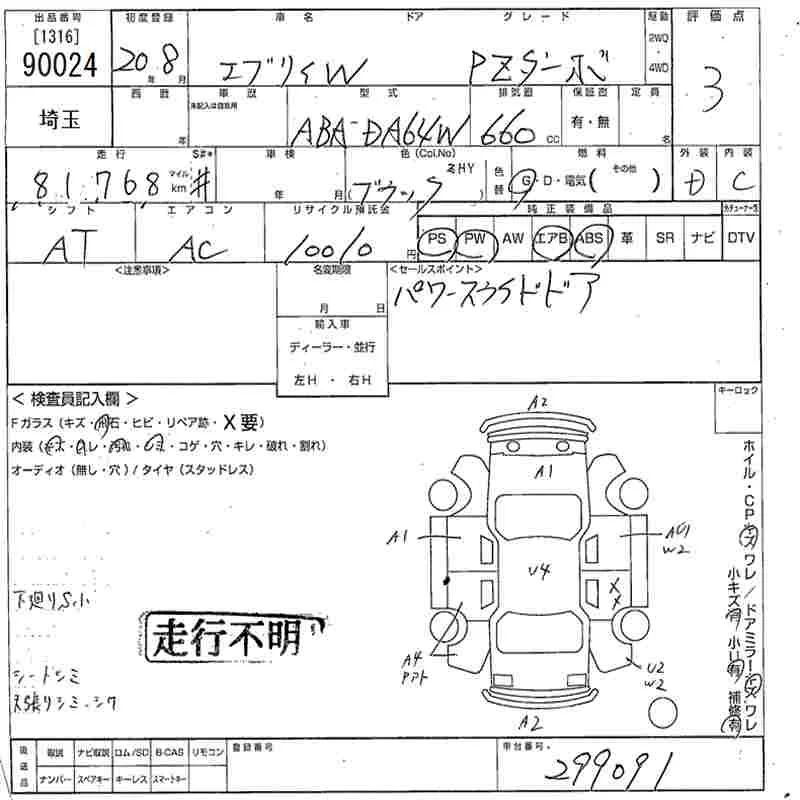 出品番号 初度登録 車名 ドア グレード 駆動 評価点
[1316]
90024 20年 8月 エブリィW PZターボ 2WD・4WD 3
埼玉 西暦 年 車歴 未記入は自家用 型式 ABA-DA64W 排気量 660 cc 保証書 有・無 定員 名
走行 S#* 車検 色(Col.No) 燃料 外装 内装
81,768 マイル km # 年 月 (ブラック ZHY) 色替 G・D・電気( その他 ) D C
シフト エアコン リサイクル預託金 純正装備品
AT AC 10010 円 PS PW AW エアB ABS 革 SR ナビ DTV
<注意事項> 名変期限 <セールスポイント>
月 日 パワースライドドア
輸入車
ディーラー・並行
左H・右H
<検査員記入欄> キーロック
Fガラス(キズ・飛石・ヒビ・リペア跡・X要)
内装(キズ・スレ・汚れ・シミ・コゲ・穴・キレ・破れ・割れ)
オーディオ(無し・穴)/タイヤ(スタッドレス)
ホイル・CPキズワレ/ドアミラーキズワレ
小キズ有 小凹有 補修有
A2
A1
A1
W2
U4
XX
A4
U2
W2
A2
下廻りS小
走行不明
シートシミ
天張りシミ
後送品 取説 ナビ取説 ロム/SD B-CAS リモコン 登録番号 車台番号
ナンバー スペアキー キーレス スマートキー 299091